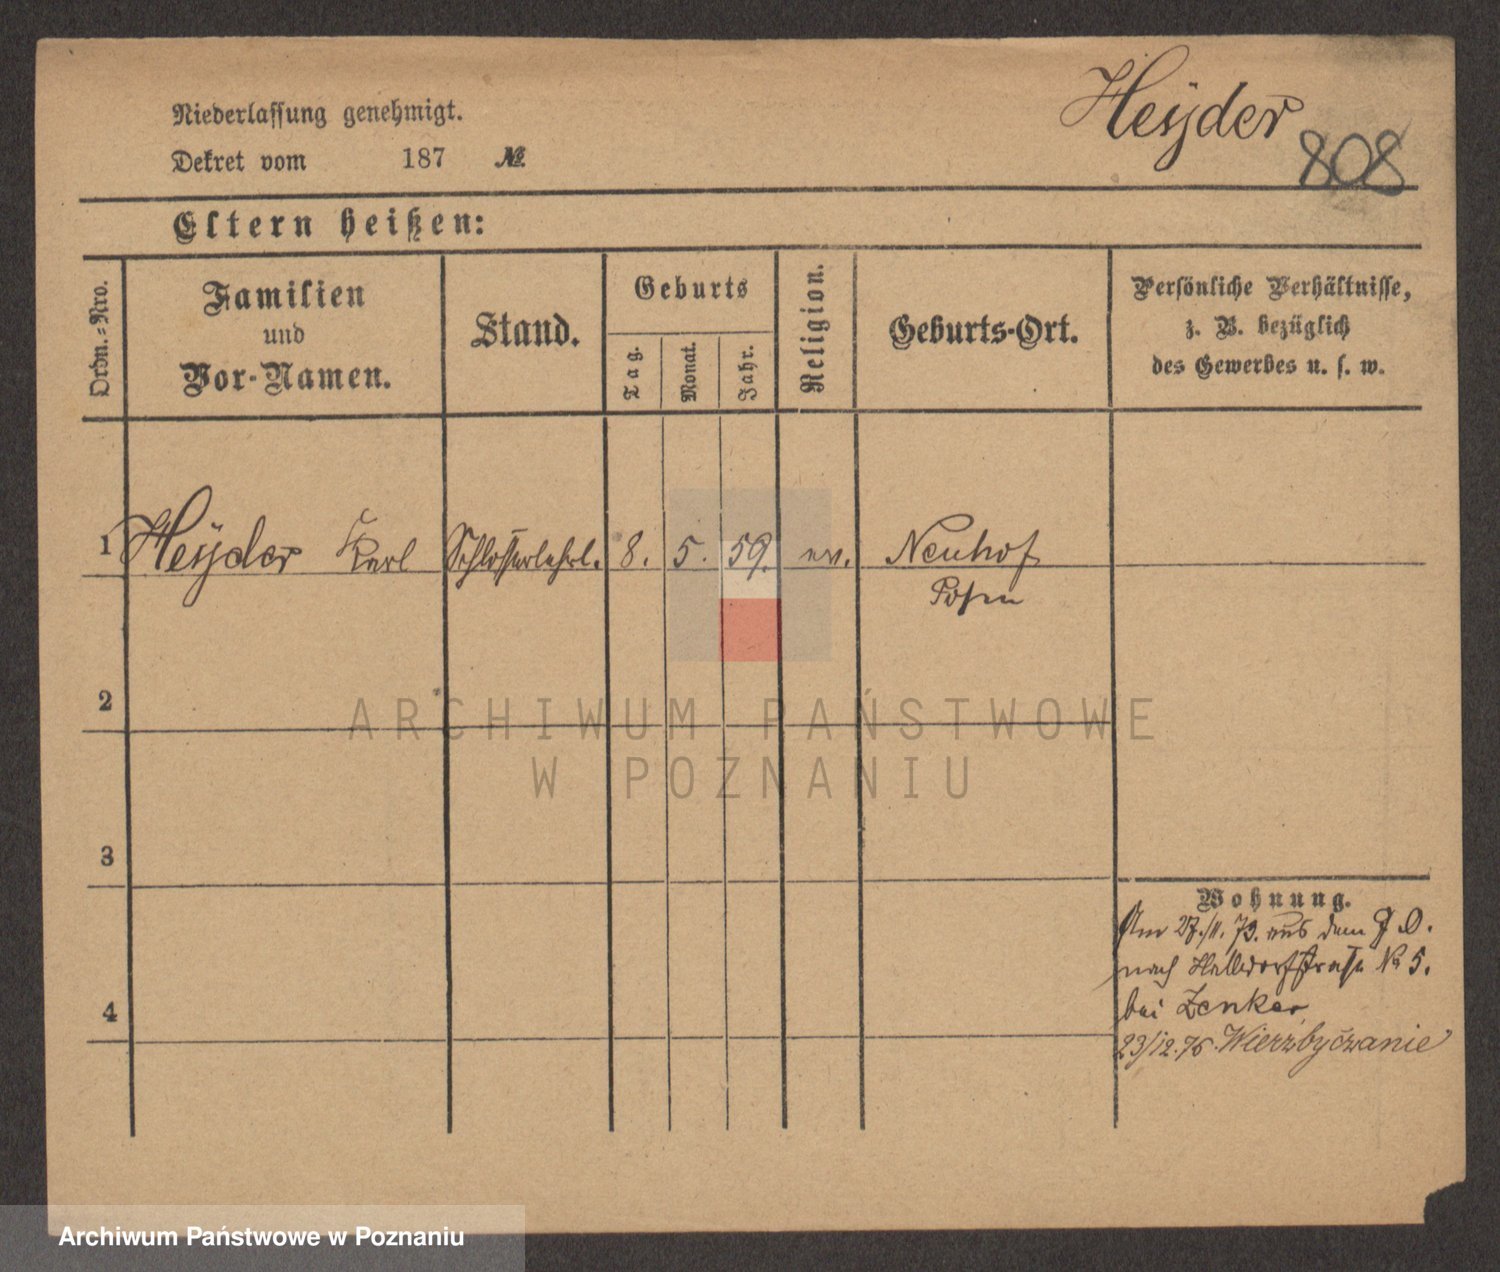 Heyder
808
Niederlassung genehmigt.
Dekret vom 187 №
Eltern heißen:
Ordn.-Nro.
Familien und Vor-Namen.
Stand.
Geburts
Tag.
Monat.
Jahr.
Religion.
Geburts-Ort.
Persönliche Verhältnisse,
z. B. bezüglich
des Gewerbes u. s. w.
1 Heyder Karl Schlosserlehrl. 8. 5. 59. ev. Neuhof
Posen
2
3
4
Wohnung.
Am 27./11. 73. aus dem
nach № 5.
bei Zenker
23/12. 76. Wierzbyczanie
ARCHIWUM PAŃSTWOWE
W POZNANIU
Archiwum Państwowe w Poznaniu